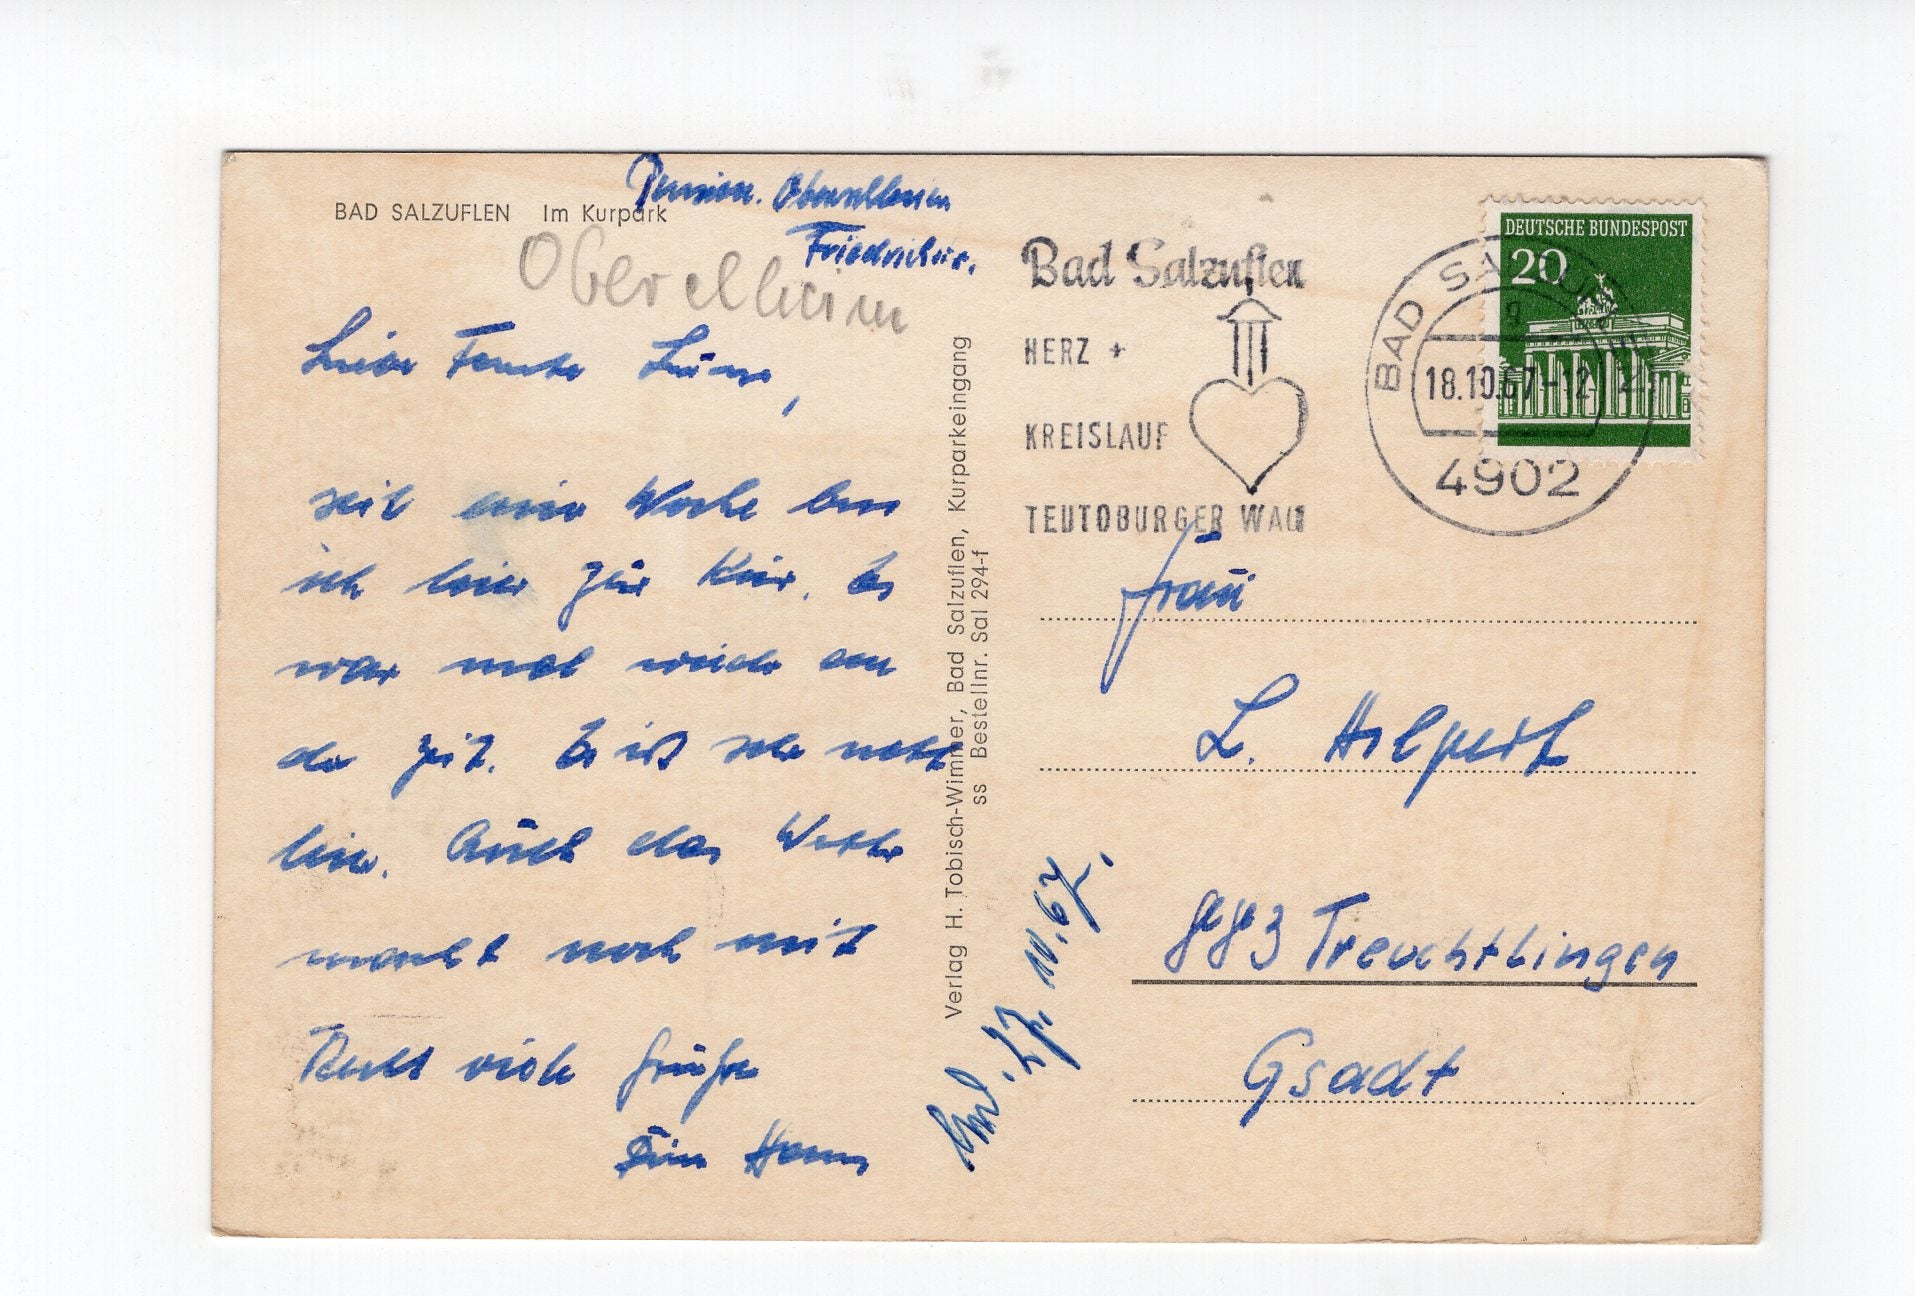 BAD SALZUFLEN Im Kurpark
Pension.
Friedrichstr.
Liebe Tante Luise,
seit einer Woche bin
ich hier zur Kur. Es
war mal wieder an
der Zeit. Es ist sehr nett
hier. Auch das Wetter
macht noch mit
Recht viele Grüße
Dein Hans
Verlag H. Tobisch-Wimmer, Bad Salzuflen, Kurparkeingang
ss Bestellnr. Sal 294-f
17.10.67.
Bad Salzuflen
HERZ +
KREISLAUF
TEUTOBURGER WALD
DEUTSCHE BUNDESPOST
20
BAD SALZUFLEN 2
a
18.10.67-12
4902
Frau
L. Hilpert
883 Treuchtlingen
Gsadt